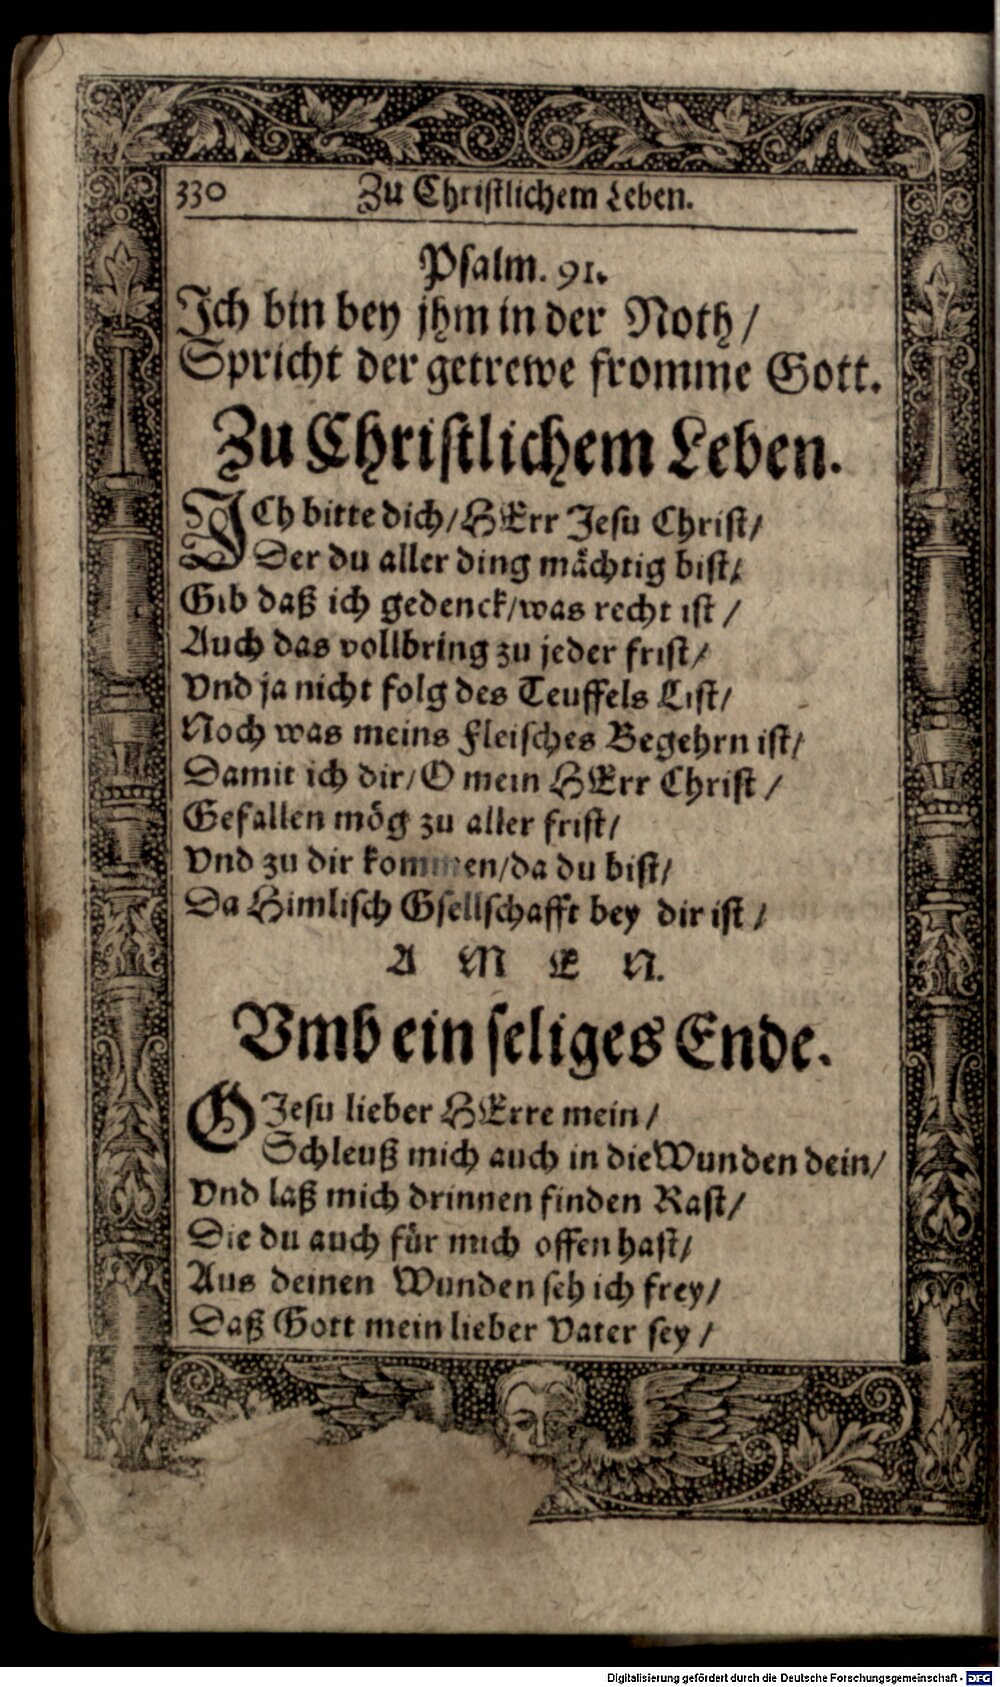 330 Zu Christlichem Leben.
Psalm. 91.
Ich bin bey jhm in der Noth /
Spricht der getrewe fromme Gott.
Zu Christlichem Leben.
ICh bitte dich / HErr Jesu Christ /
Der du aller ding mächtig bist /
Gib daß ich gedenck / was recht ist /
Auch das vollbring zu jeder frist /
Vnd ja nicht folg des Teuffels List /
Noch was meins Fleisches Begehrn ist /
Damit ich dir / O mein HErr Christ /
Gefallen mög zu aller frist /
Vnd zu dir kommen / da du bist /
Da Himlisch Gsellschafft bey dir ist /
A M E N.
Vmb ein seliges Ende.
O Jesu lieber HErre mein /
Schleuß mich auch in die Wunden dein /
Vnd laß mich drinnen finden Rast /
Die du auch für mich offen hast /
Aus deinen Wunden seh ich frey /
Daß Gott mein lieber Vater sey /
Digitalisierung gefördert durch die Deutsche Forschungsgemeinschaft - DFG